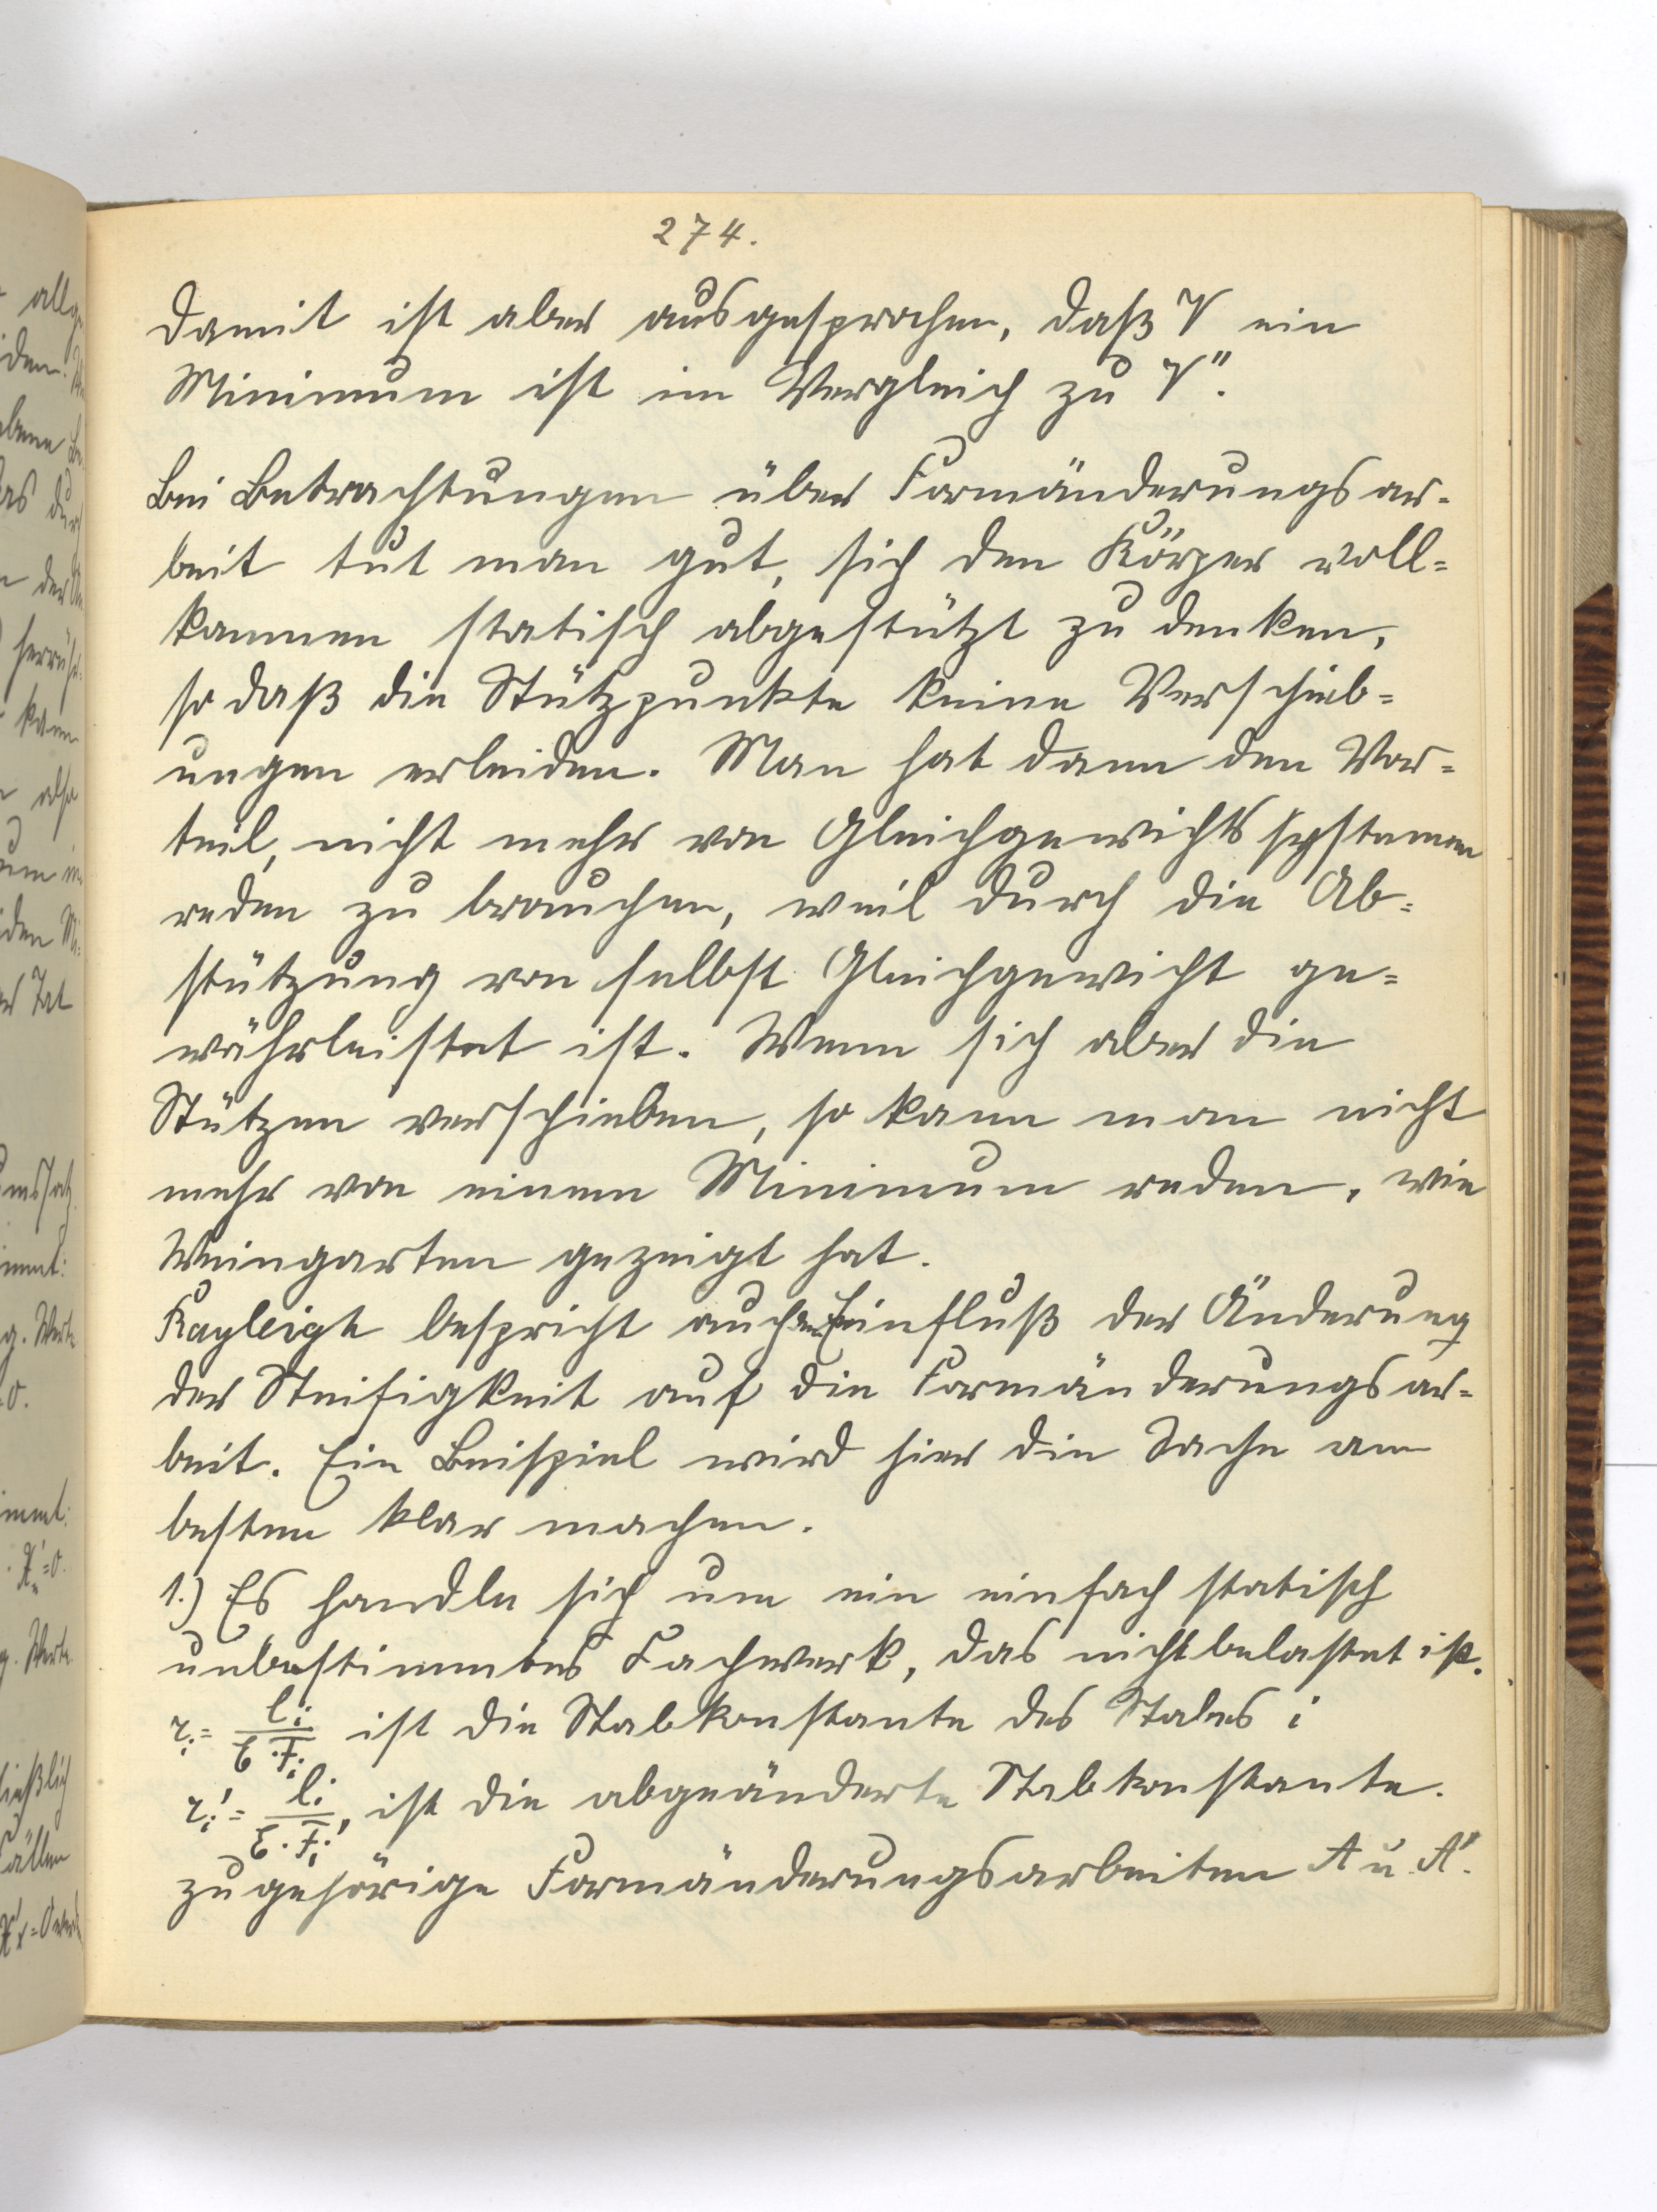 274.
Damit ist aber ausgesprochen, daß V ein
Minimum ist im Vergleich zu V".
Bei Betrachtungen über Formänderungsar-
beit tut man gut, sich den Körper voll-
kommen statisch abgestützt zu denken,
so daß die Stützpunkte keine Verschieb-
ungen erleiden. Man hat dann den Vor-
teil, nicht mehr von Gleichgewichtssystemen
reden zu brauchen, weil durch die Ab-
stützung von selbst Gleichgewicht ge-
währleistet ist. Wenn sich aber die
Stützen verschieben, so kann man nicht
mehr von einem Minimum reden, wie
Weingarten gezeigt hat.
Rayleigh bespricht auch den Einfluß der Änderung
der Steifigkeit auf die Formänderungsar-
beit. Ein Beispiel wird hier die Sache am
besten klar machen.
1.) Es handle sich um ein einfach statisch
unbestimmtes Fachwerk, das nicht belastet ist.
r_i = l_i / (E·F_i) ist die Stabkonstante des Stabes i
r_i' = l_i / (E·F_i'), ist die abgeänderte Stabkonstante.
zugehörige Formänderungsarbeiten A u. A'.